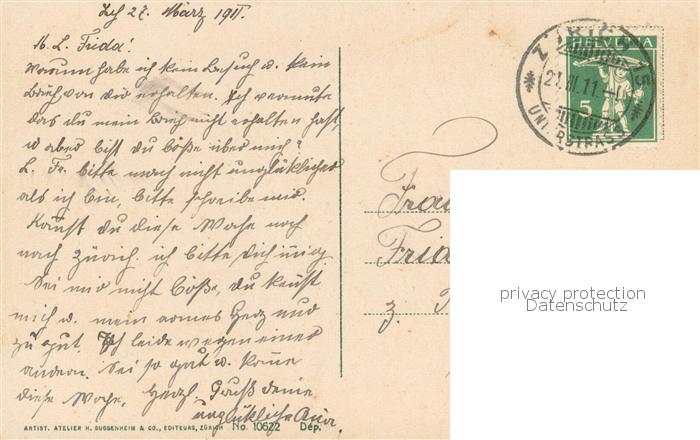 Zch 27. März 1911.
M. L. Frida!
Warum habe ich kein Besuch u. kein
Brief von dir erhalten. Ich vermute
das du mein Brief nicht erhalten hast,
u aber bist du böße über mich?
L. Fr. bitte mach mich nicht unglücklicher
als ich bin, bitte schreibe mir.
Kannst du diese Woche noch
nach Zürich. ich bitte dich innig
Sei mir nicht böße, du kennst
mich u. mein armes Herz nur
zu gut. Ich leide wegen einer
andern. Sei so gut u. komme
diese Woche. Herzl. Gruß deine
unglückliche
ARTIST. ATELIER H. GUGGENHEIM & CO., EDITEURS, ZÜRICH No. 10622 Dép.
ZÜRICH 15
HELVETIA
21.III.11.
5
UNIVERSTRASSE
Frau
Frid
z.
privacy protection
Datenschutz